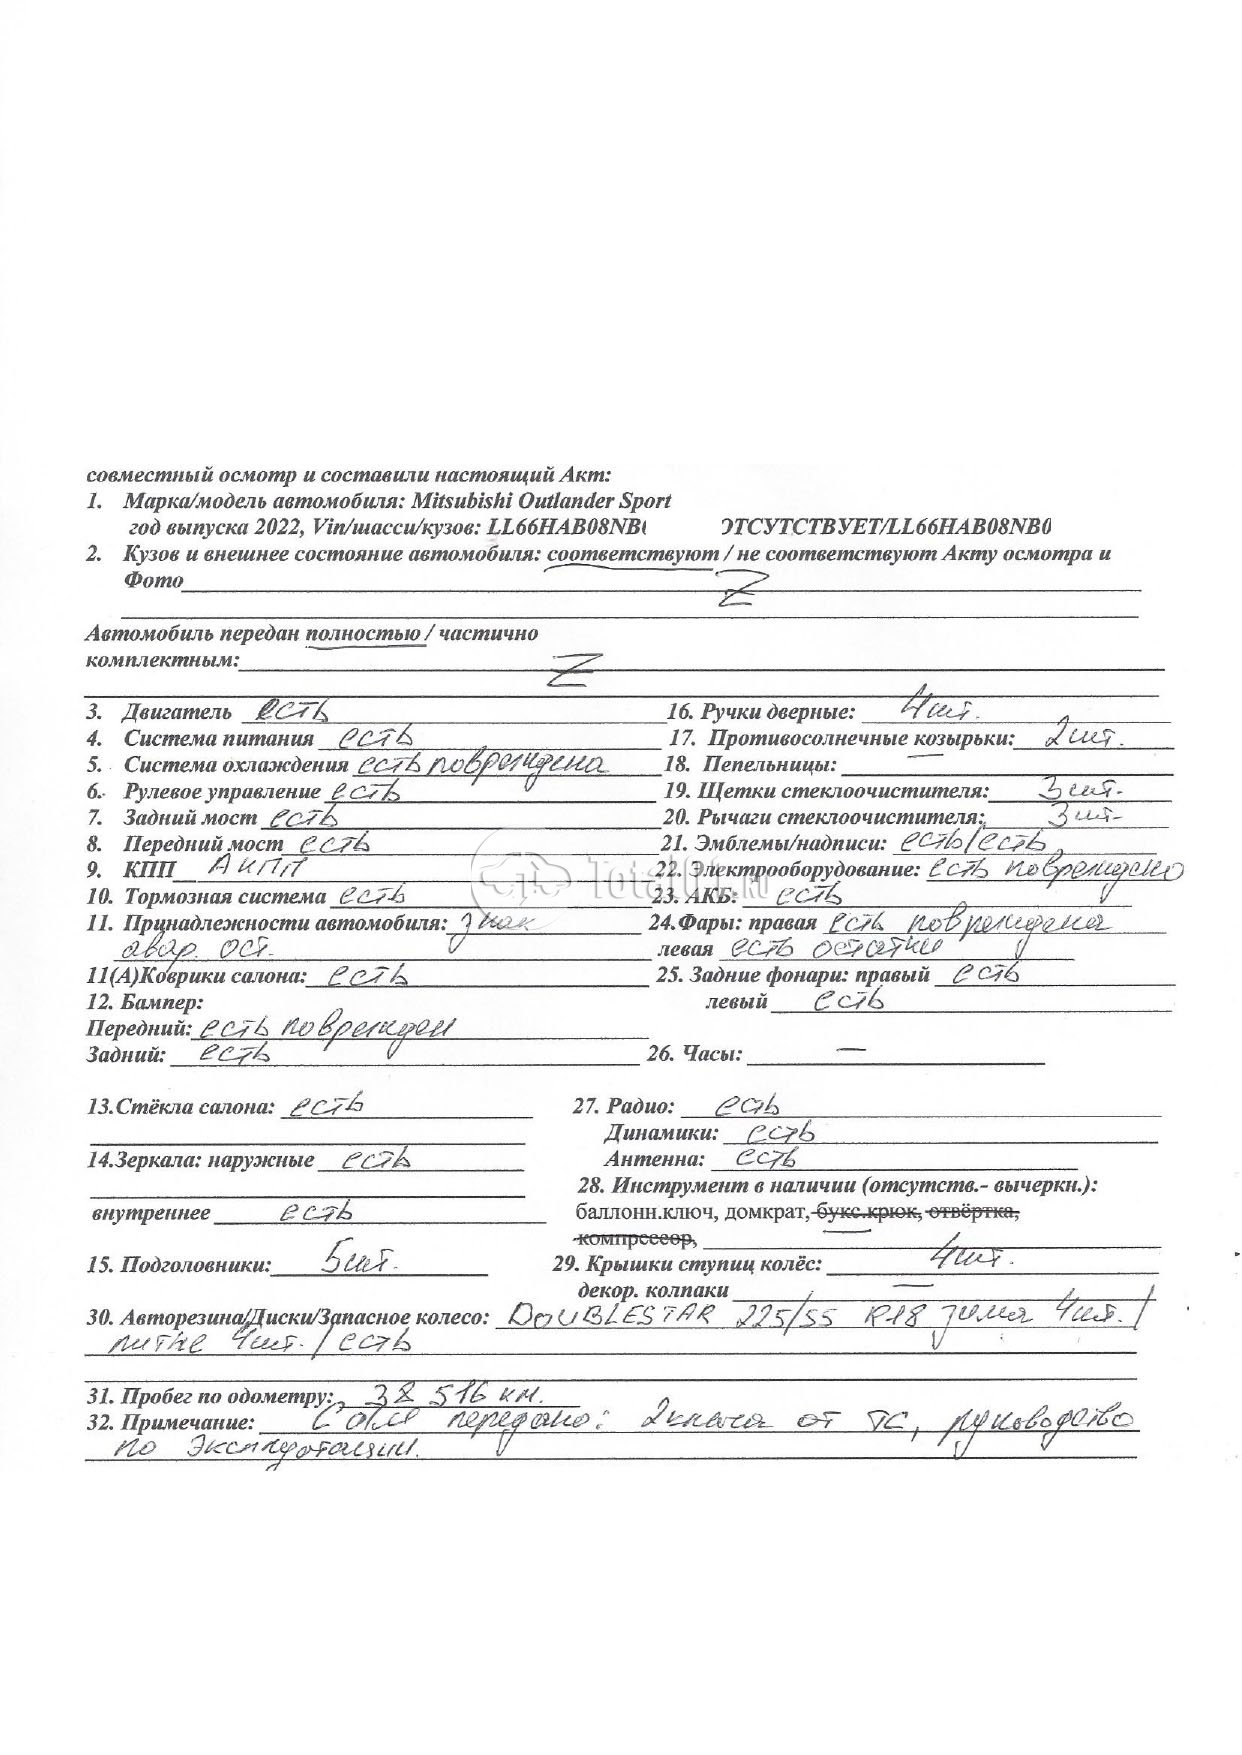 совместный осмотр и составили настоящий Акт:
1. Марка/модель автомобиля: Mitsubishi Outlander Sport
год выпуска 2022, Vin/шасси/кузов: LL66HAB08NB0 ОТСУТСТВУЕТ/LL66HAB08NB0
2. Кузов и внешнее состояние автомобиля: соответствуют / не соответствуют Акту осмотра и
Фото Z
Автомобиль передан полностью / частично
комплектным: Z
3. Двигатель есть 16. Ручки дверные: 4шт.
4. Система питания есть 17. Противосолнечные козырьки: 2шт.
5. Система охлаждения есть повреждена 18. Пепельницы: —
6. Рулевое управление есть 19. Щетки стеклоочистителя: 3 шт.
7. Задний мост есть 20. Рычаги стеклоочистителя: 3 шт.
8. Передний мост есть 21. Эмблемы/надписи: есть/есть
9. КПП АКПП 22. Электрооборудование: есть повреждено
Total01.ru
10. Тормозная система есть 23. АКБ: есть
11. Принадлежности автомобиля: знак 24.Фары: правая есть повреждена
авар. ост. левая есть остатки
11(А)Коврики салона: есть 25. Задние фонари: правый есть
12. Бампер: левый есть
Передний: есть поврежден
Задний: есть 26. Часы: —
13.Стёкла салона: есть 27. Радио: есть
Динамики: есть
14.Зеркала: наружные есть Антенна: есть
28. Инструмент в наличии (отсутств.- вычеркн.):
внутреннее есть баллонн.ключ, домкрат, букс.крюк, отвёртка,
компрессор, —
15. Подголовники: 5шт. 29. Крышки ступиц колёс: 4шт.
декор. колпаки —
30. Авторезина/Диски/Запасное колесо: DOUBLESTAR 225/55 R18 зима 4шт./
литые 4шт. / есть
31. Пробег по одометру: 38 516 км.
32. Примечание: С а/м передано: 2ключа от ТС, руководство
по эксплуатации.